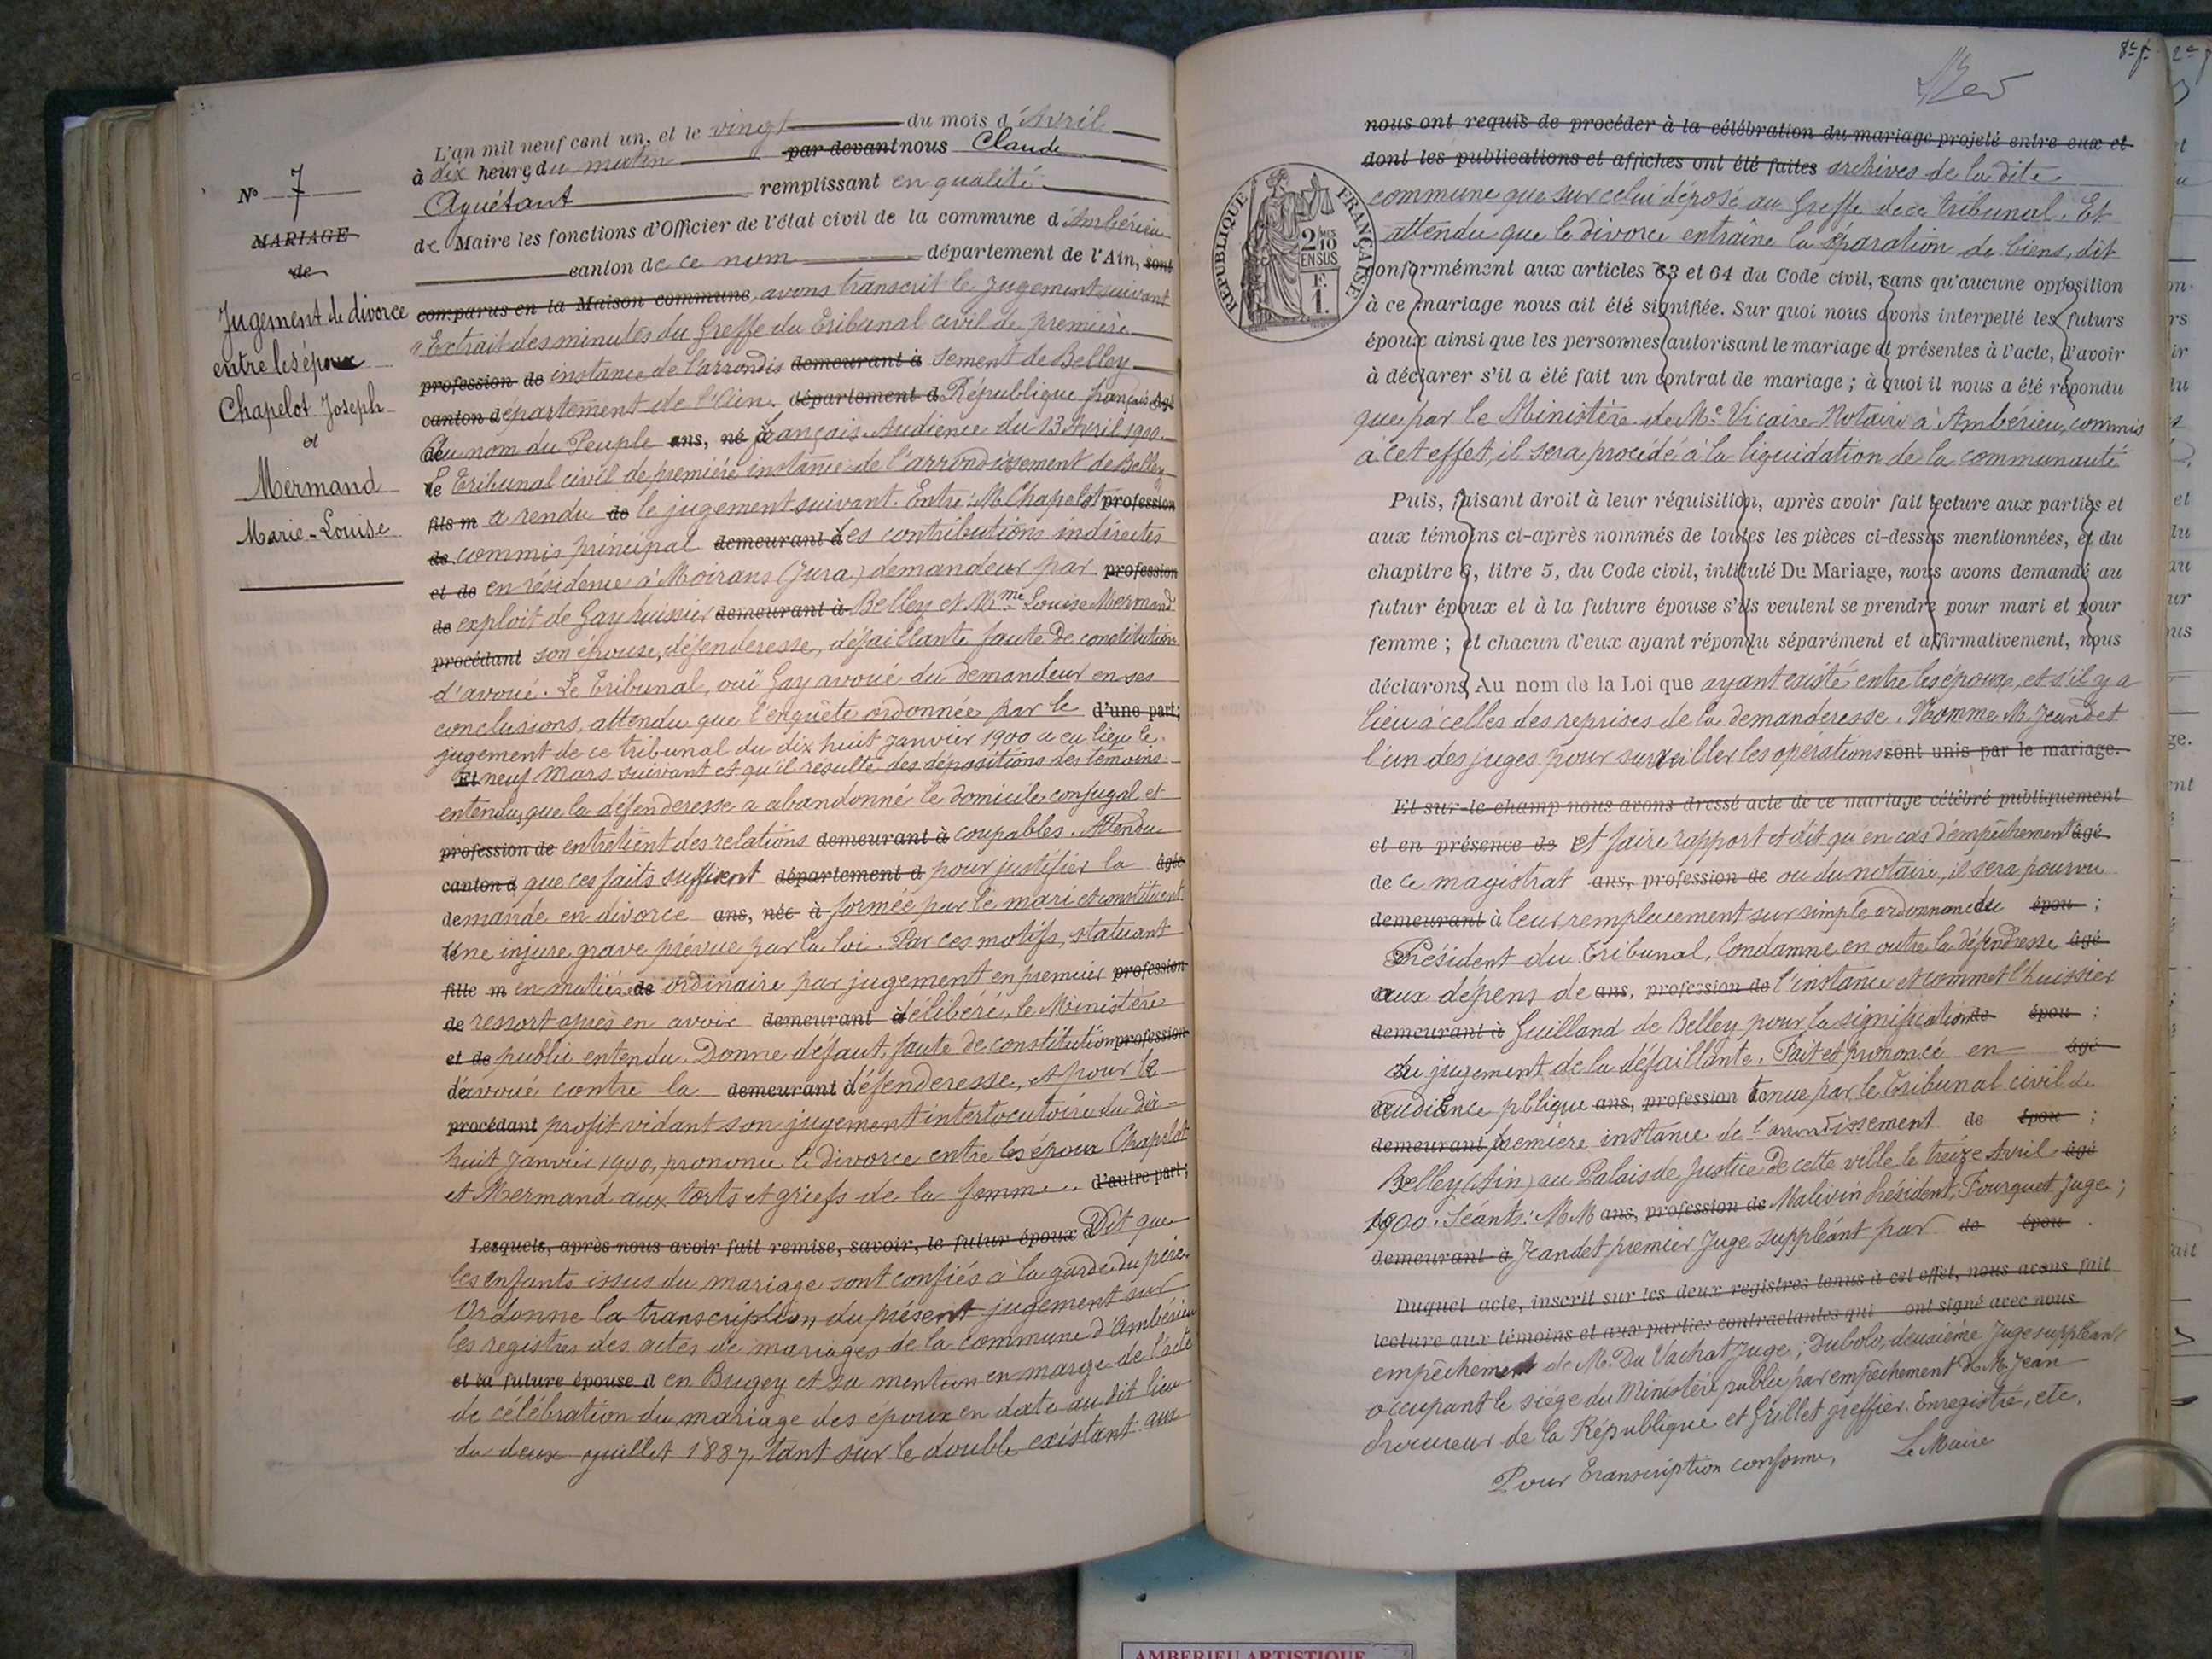 N° 7
MARIAGE
de
Jugement de divorce
entre les époux
Chapelot Joseph
et
Mermand
Marie-Louise
L'an mil neuf cent un, et le vingt du mois d'Avril
à dix heures du matin par devant nous Claude
Aguétant remplissant en qualité
de Maire les fonctions d'Officier de l'état civil de la commune d'Ambérieu
canton de ce nom département de l'Ain, sont
comparus en la Maison commune, avons transcrit le Jugement suivant
"Extrait des minutes du Greffe du Tribunal civil de première
profession de instance de l'arrondis demeurant à sement de Belley
canton département de l'Ain. département d République française âgé
Au nom du Peuple ans, né français. Audience du 13 Avril 1900.
Le Tribunal civil de première instance de l'arrondissement de Belley
fils m a rendu de le jugement suivant. Entre: M. Chapelot profession
de commis principal demeurant des contributions indirectes
et de en résidence à Moirans (Jura) demandeur par profession
de exploit de Gay huissier demeurant à Belley et Mme Louise Mermand
procédant son épouse, défenderesse, défaillante faute de constitution
d'avoué. Le Tribunal, ouï Gay avoué du demandeur en ses
conclusions, attendu que l'enquête ordonnée par le d'une part;
jugement de ce tribunal du dix huit Janvier 1900 a eu lieu le
Et neuf Mars suivant et qu'il résulte des dépositions des témoins
entendus, que la défenderesse a abandonné le domicile conjugal et
profession de entretient des relations demeurant à coupables. Attendu
canton d que ces faits suffisent département d pour justifier la âgée
demande en divorce ans, née à formée par le mari et constituent
une injure grave prévue par la loi. Par ces motifs, statuant
fille m en matière de ordinaire par jugement en premier profession
de ressort après en avoir demeurant à délibéré, le Ministère
et de public entendu. Donne défaut, faute de constitution profession
d'avoué contre la demeurant défenderesse, et pour le
procédant profit vidant son jugement interlocutoire du dix-
huit Janvier 1900, prononce le divorce entre les époux Chapelot
et Mermand aux torts et griefs de la femme. d'autre part;
Lesquels, après nous avoir fait remise, savoir, le futur époux d Dit que
les enfants issus du mariage sont confiés à la garde du père.
Ordonne la transcription du présent jugement sur
les registres des actes de mariages de la commune d'Ambérieu
et la future épouse d en Bugey et sa mention en marge de l'acte
de célébration du mariage des époux en date au dit lieu
du deux juillet 1887, tant sur le double existant aux
8e f.
nous ont requis de procéder à la célébration du mariage projeté entre eux et
dont les publications et affiches ont été faites archives de la dite
commune que sur celui déposé au Greffe de ce tribunal. Et
attendu que le divorce entraîne la séparation de biens, dit
conformément aux articles 63 et 64 du Code civil, sans qu'aucune opposition
à ce mariage nous ait été signifiée. Sur quoi nous avons interpellé les futurs
époux ainsi que les personnes autorisant le mariage et présentes à l'acte, d'avoir
à déclarer s'il a été fait un contrat de mariage; à quoi il nous a été répondu
que par le Ministère de Me Vicaire Notaire à Ambérieu, commis
à cet effet, il sera procédé à la liquidation de la communauté
Puis, faisant droit à leur réquisition, après avoir fait lecture aux parties et
aux témoins ci-après nommés de toutes les pièces ci-dessus mentionnées, et du
chapitre 6, titre 5, du Code civil, intitulé Du Mariage, nous avons demandé au
futur époux et à la future épouse s'ils veulent se prendre pour mari et pour
femme; et chacun d'eux ayant répondu séparément et affirmativement, nous
déclarons, Au nom de la Loi que ayant existé entre les époux, et s'il y a
lieu à celles des reprises de la demanderesse. Nomme M. Jeandet
l'un des juges pour surveiller les opérations sont unis par le mariage.
Et sur-le-champ nous avons dressé acte de ce mariage célébré publiquement
et en présence de et faire rapport et dit qu'en cas d'empêchement âgé
de ce magistrat ans, profession de ou du notaire, il sera pourvu
demeurant à leur remplacement sur simple ordonnance du épou ;
Président du Tribunal, Condamne en outre la défendresse âgé
aux dépens de ans, profession de l'instance et commet l'huissier
demeurant à Guilland de Belley pour la signification de épou ;
du jugement de la défaillante. Fait et prononcé en âgé
audience pblique ans, profession tenue par le Tribunal civil de
demeurant première instance de l'arrondissement de épou ;
Belley (Ain) au Palais de Justice de cette ville le treize Avril âgé
1900. Séants: MM ans, profession de Malivin Président, Fourquet Juge;
demeurant à Jeandet premier Juge suppléant par de épou .
Duquel acte, inscrit sur les deux registres tenus à cet effet, nous avons fait
lecture aux témoins et aux parties contractantes qui ont signé avec nous
empêchement de M. Du Vachat Juge; Dubolo, deuxième Juge suppléant
occupant le siège du Ministère public par empêchement de M. Jean
Procureur de la République et Grillet greffier. Enregistré, etc.
Pour Transcription conforme, Le Maire
RÉPUBLIQUE FRANÇAISE
2 MES
10
EN SUS
F.
1.
AMBERIEU ARTISTIQUE